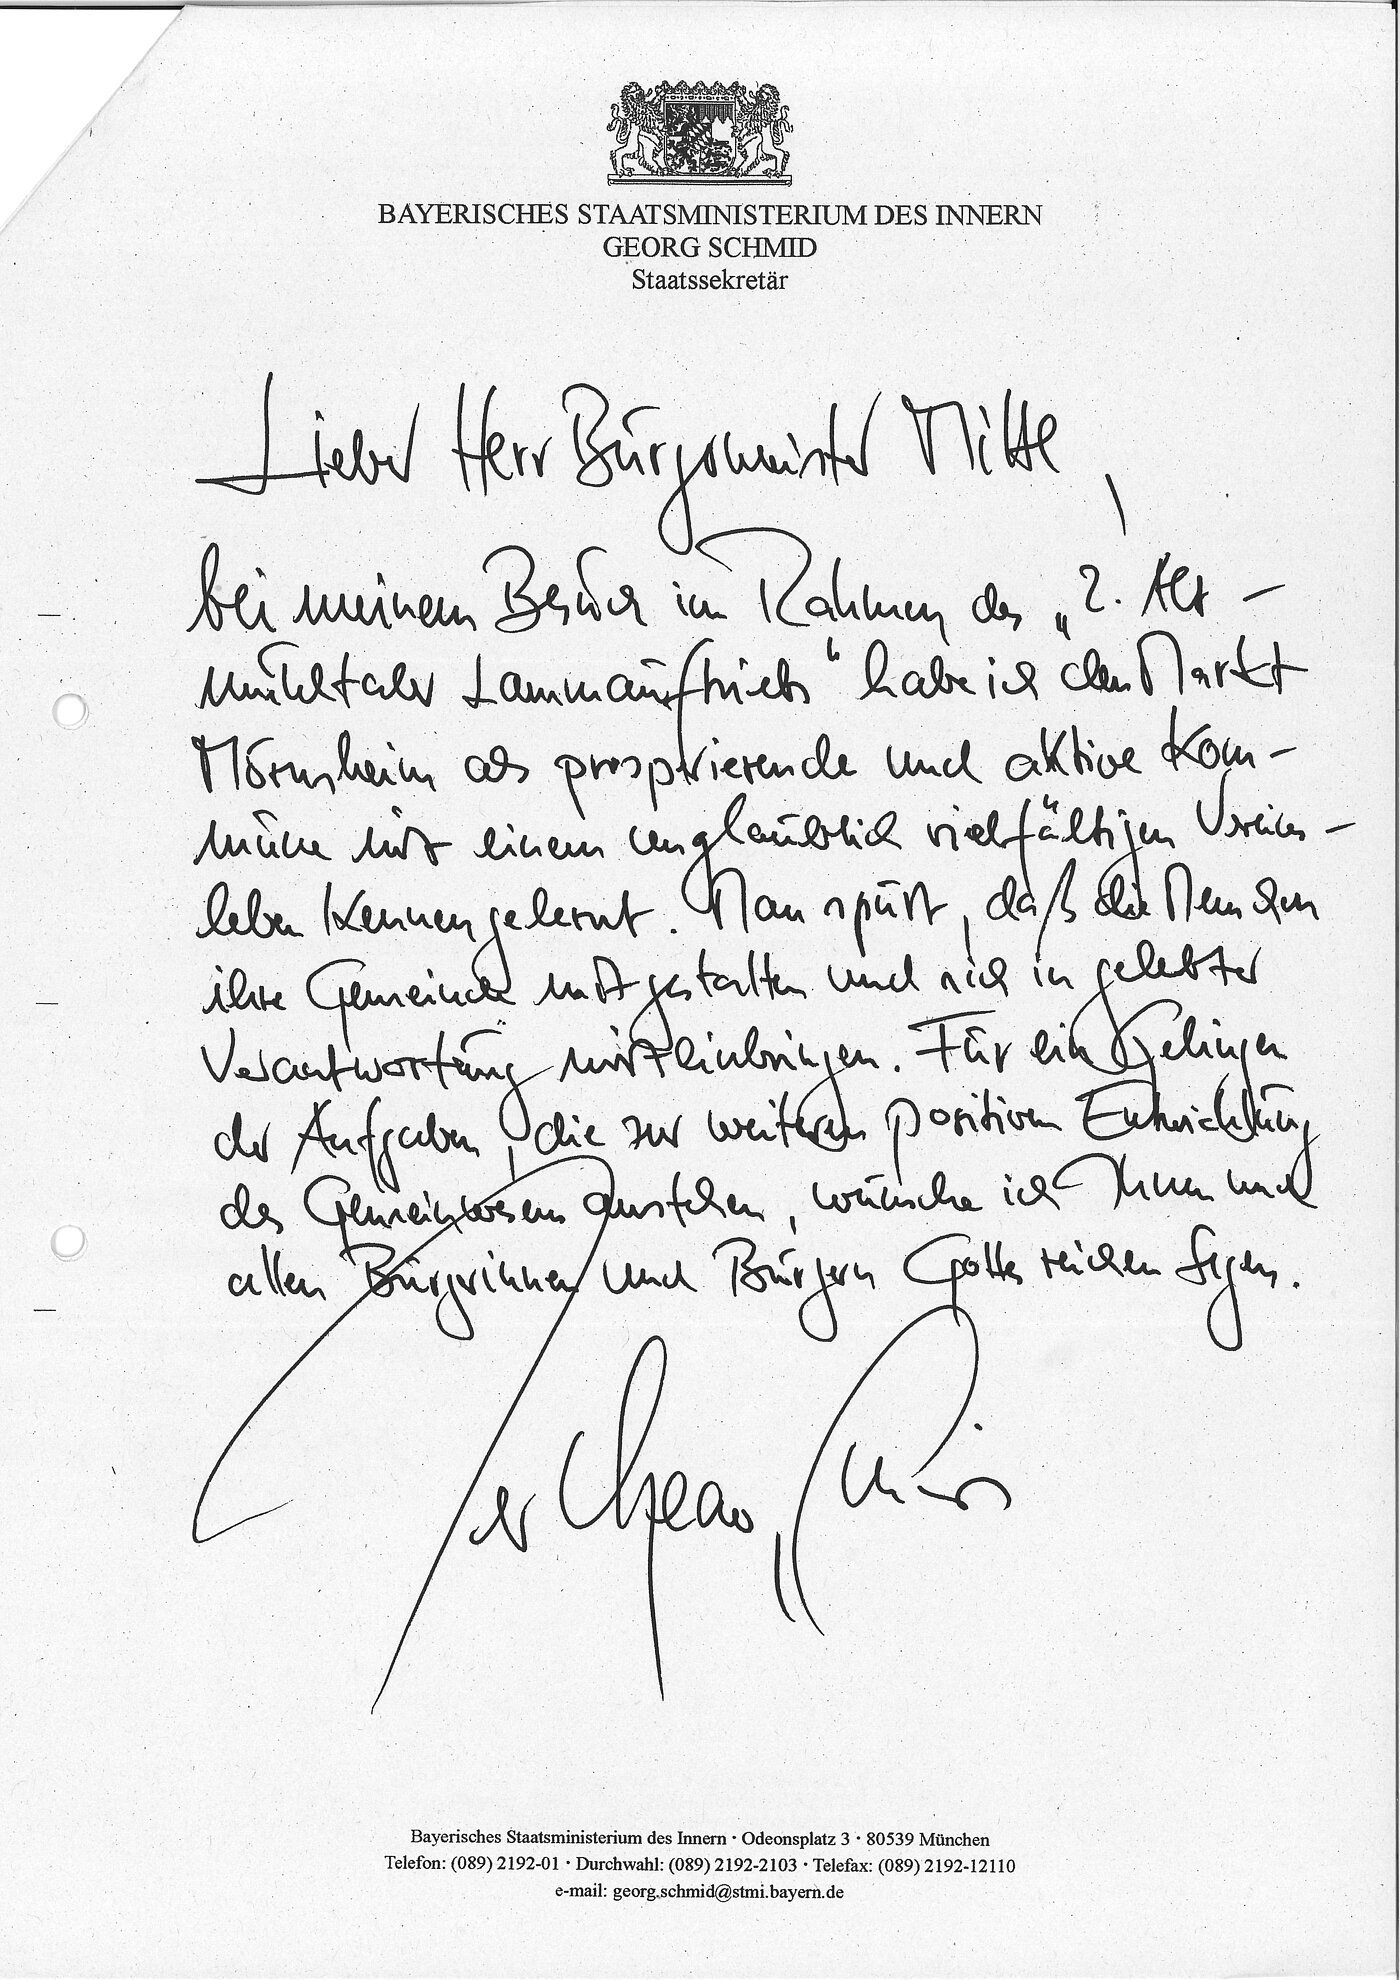 BAYERISCHES STAATSMINISTERIUM DES INNERN
GEORG SCHMID
Staatssekretär
Lieber Herr Bürgermeister Mittl,
bei meinem Besuch im Rahmen des „2. Alt-
mühltaler Lammauftriebs“ habe ich den Markt
Mörnsheim als prosperierende und aktive Kom-
mune mit einem unglaublich vielfältigen Vereins-
leben kennengelernt. Man spürt, daß die Menschen
ihre Gemeinde mitgestalten und sich in gelebter
Verantwortung miteinbringen. Für ein Gelingen
der Aufgaben, die zur weiteren positiven Entwicklung
des Gemeinwesens anstehen, wünsche ich Ihnen und
allen Bürgerinnen und Bürgern Gottes reichen Segen.
Ihr Georg Schmid
Bayerisches Staatsministerium des Innern · Odeonsplatz 3 · 80539 München
Telefon: (089) 2192-01 · Durchwahl: (089) 2192-2103 · Telefax: (089) 2192-12110
e-mail: georg.schmid@stmi.bayern.de